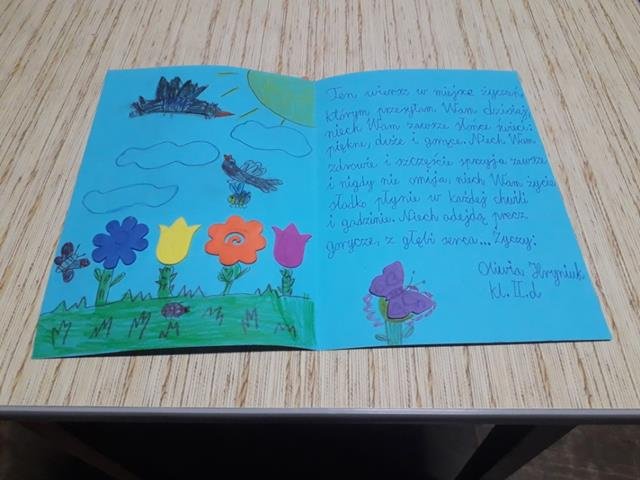 Ten wiersz w miejsce życzeń,
którym przesyłam Wam dzisiaj,
niech Wam zawsze słońce świeci:
piękne, duże i gorące. Niech Wam
zdrowie i szczęście sprzyja zawsze
i nigdy nie omija, niech Wam życie
słodko płynie w każdej chwili
i godzinie. Niech odejdą precz
gorycze, z głębi serca... Życzy:
Oliwia Hryniuk
kl. II.d